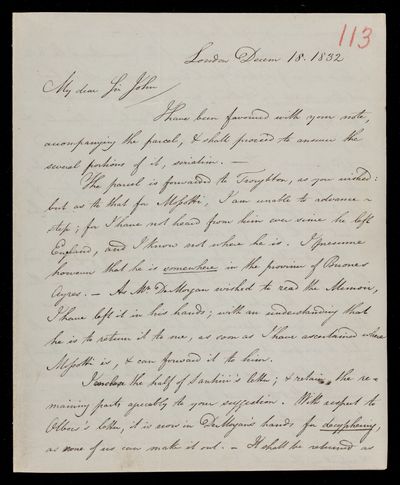 113
London Decem 18. 1832
My dear Sir John
I have been favoured with your note,
accompanying the parcel, & shall proceed to answer the
several portions of it, seriatim. —
The parcel is forwarded to Troughton, as you wished:
but as to that for Mossotti, I am unable to advance a
step; for I have not heard from him ever since he left
England, and I know not where he is. I presume
however that he is somewhere in the province of Buenos
Ayres. — As Mr DeMorgan wished to read the Memoir,
I have left it in his hands; with an understanding that
he is to return it to me, as soon as I have ascertained where
Mossotti is, & can forward it to him.
I enclose the half of Santini's letter; & retain the re-
maining part agreeably to your suggestion. With respect to
Olbers's letter, it is now in DeMorgan's hands for decyphering,
as none of us can make it out. — It shall be returned as